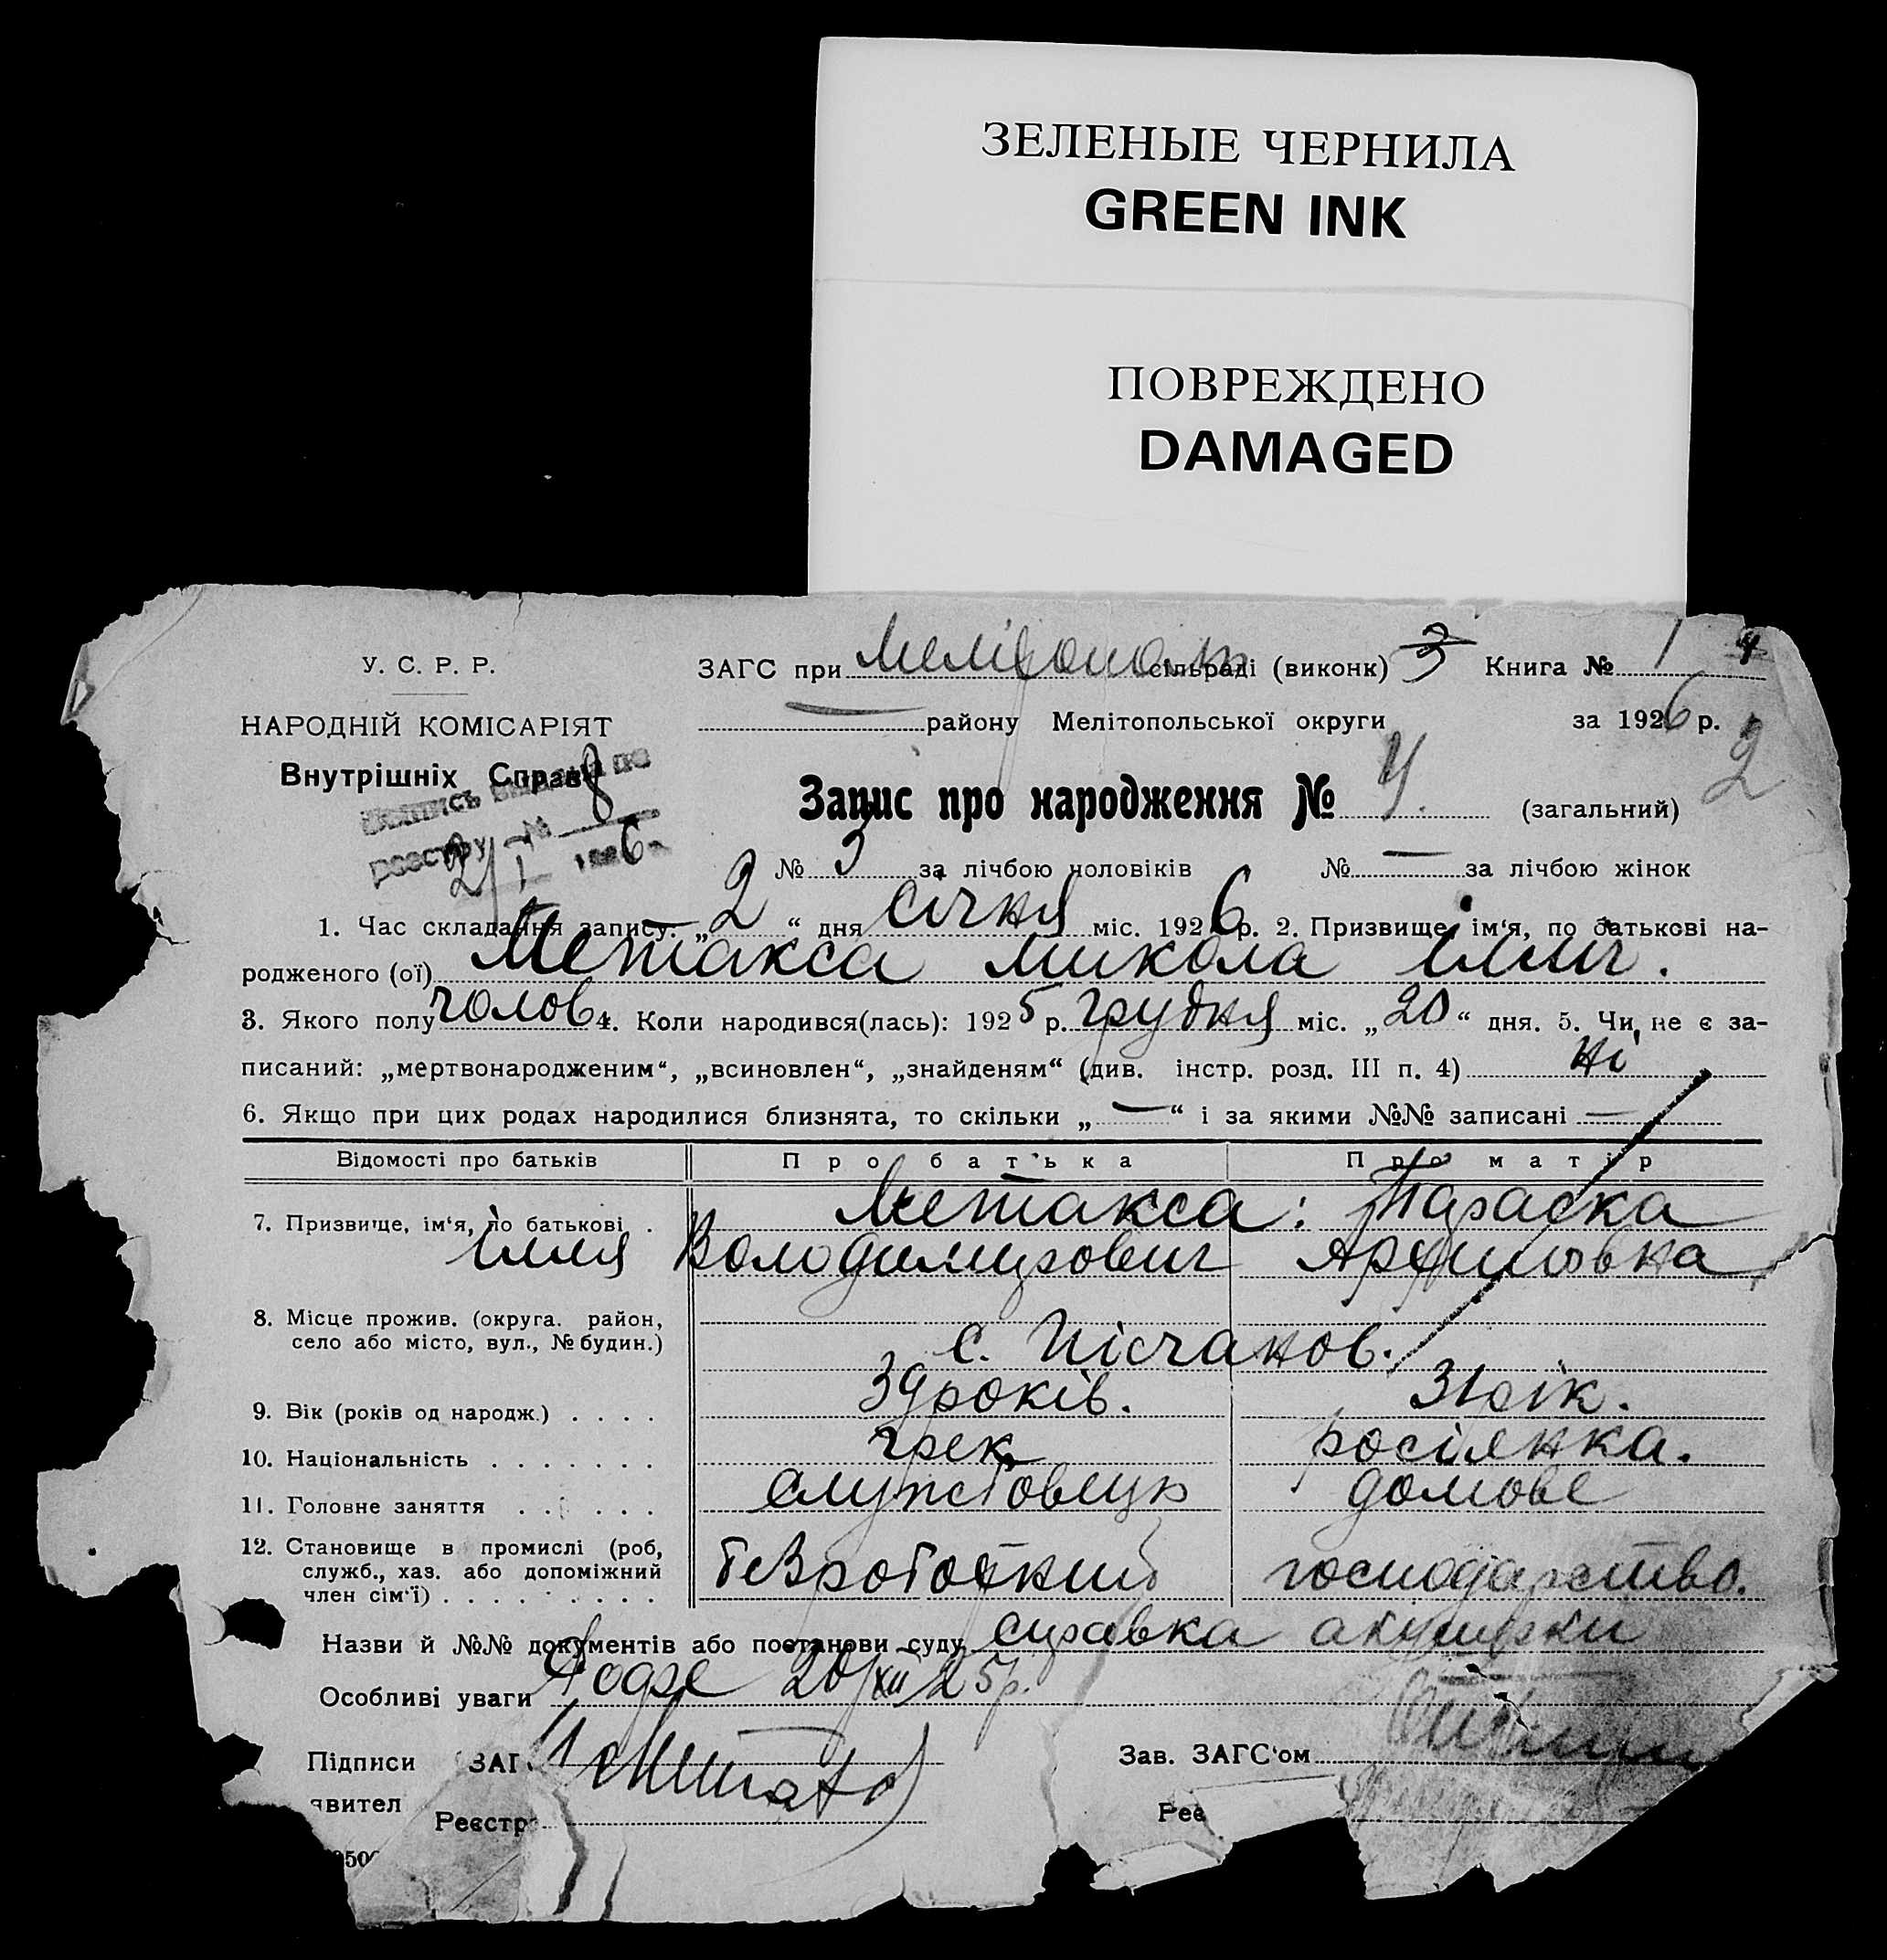 ЗЕЛЕНЫЕ ЧЕРНИЛА
GREEN INK
ПОВРЕЖДЕНО
DAMAGED
У. С. Р. Р.
НАРОДНІЙ КОМІСАРІЯТ
Внутрішніх Справ
ЗАГС при Мелітополь сільраді (виконк) 3 Книга № 1 4
— району Мелітопольської округи за 1926 р. 2
реєстру № 8
2/I 1926
Запис про народження № 4. (загальний)
№ 3 за лічбою чоловіків № — за лічбою жінок
1. Час складання запису: „2“ дня січня міс. 1926 р. 2. Призвище, ім‘я, по батькові на-
родженого (ої) Метакса Микола Ілліч.
3. Якого полу чолов 4. Коли народився(лась): 1925 р. грудня міс. „20“ дня. 5. Чи не є за-
писаний: „мертвонародженим“, „всиновлен“, „знайденям“ (див. інстр. розд. III п. 4) ні
6. Якщо при цих родах народилися близнята, то скільки „—“ і за якими №№ записані —
Відомості про батьків Про бат‘ька Про матір
7. Призвище, ім‘я, по батькові . Метакса: Параска
Ілля Володимирович
8. Місце прожив. (округа. район,
село або місто, вул., № будин.) с. Пісчанов.
9. Вік (років од народж.) . . . . 39 років. 31 рік.
10. Національність . . . . . . . грек росіянка.
11. Головне заняття . . . . . . службовець домове
12. Становище в промислі (роб,
служб., хаз. або допоміжний
член сім‘ї) . . . . . . . . . безроботний господарство.
Назви й №№ документів або постанови суду справка акушерки
Особливі уваги 20/XII 25 р.
Підписи ЗАГ Зав. ЗАГС‘ом
явител
Реєстр Реє
500